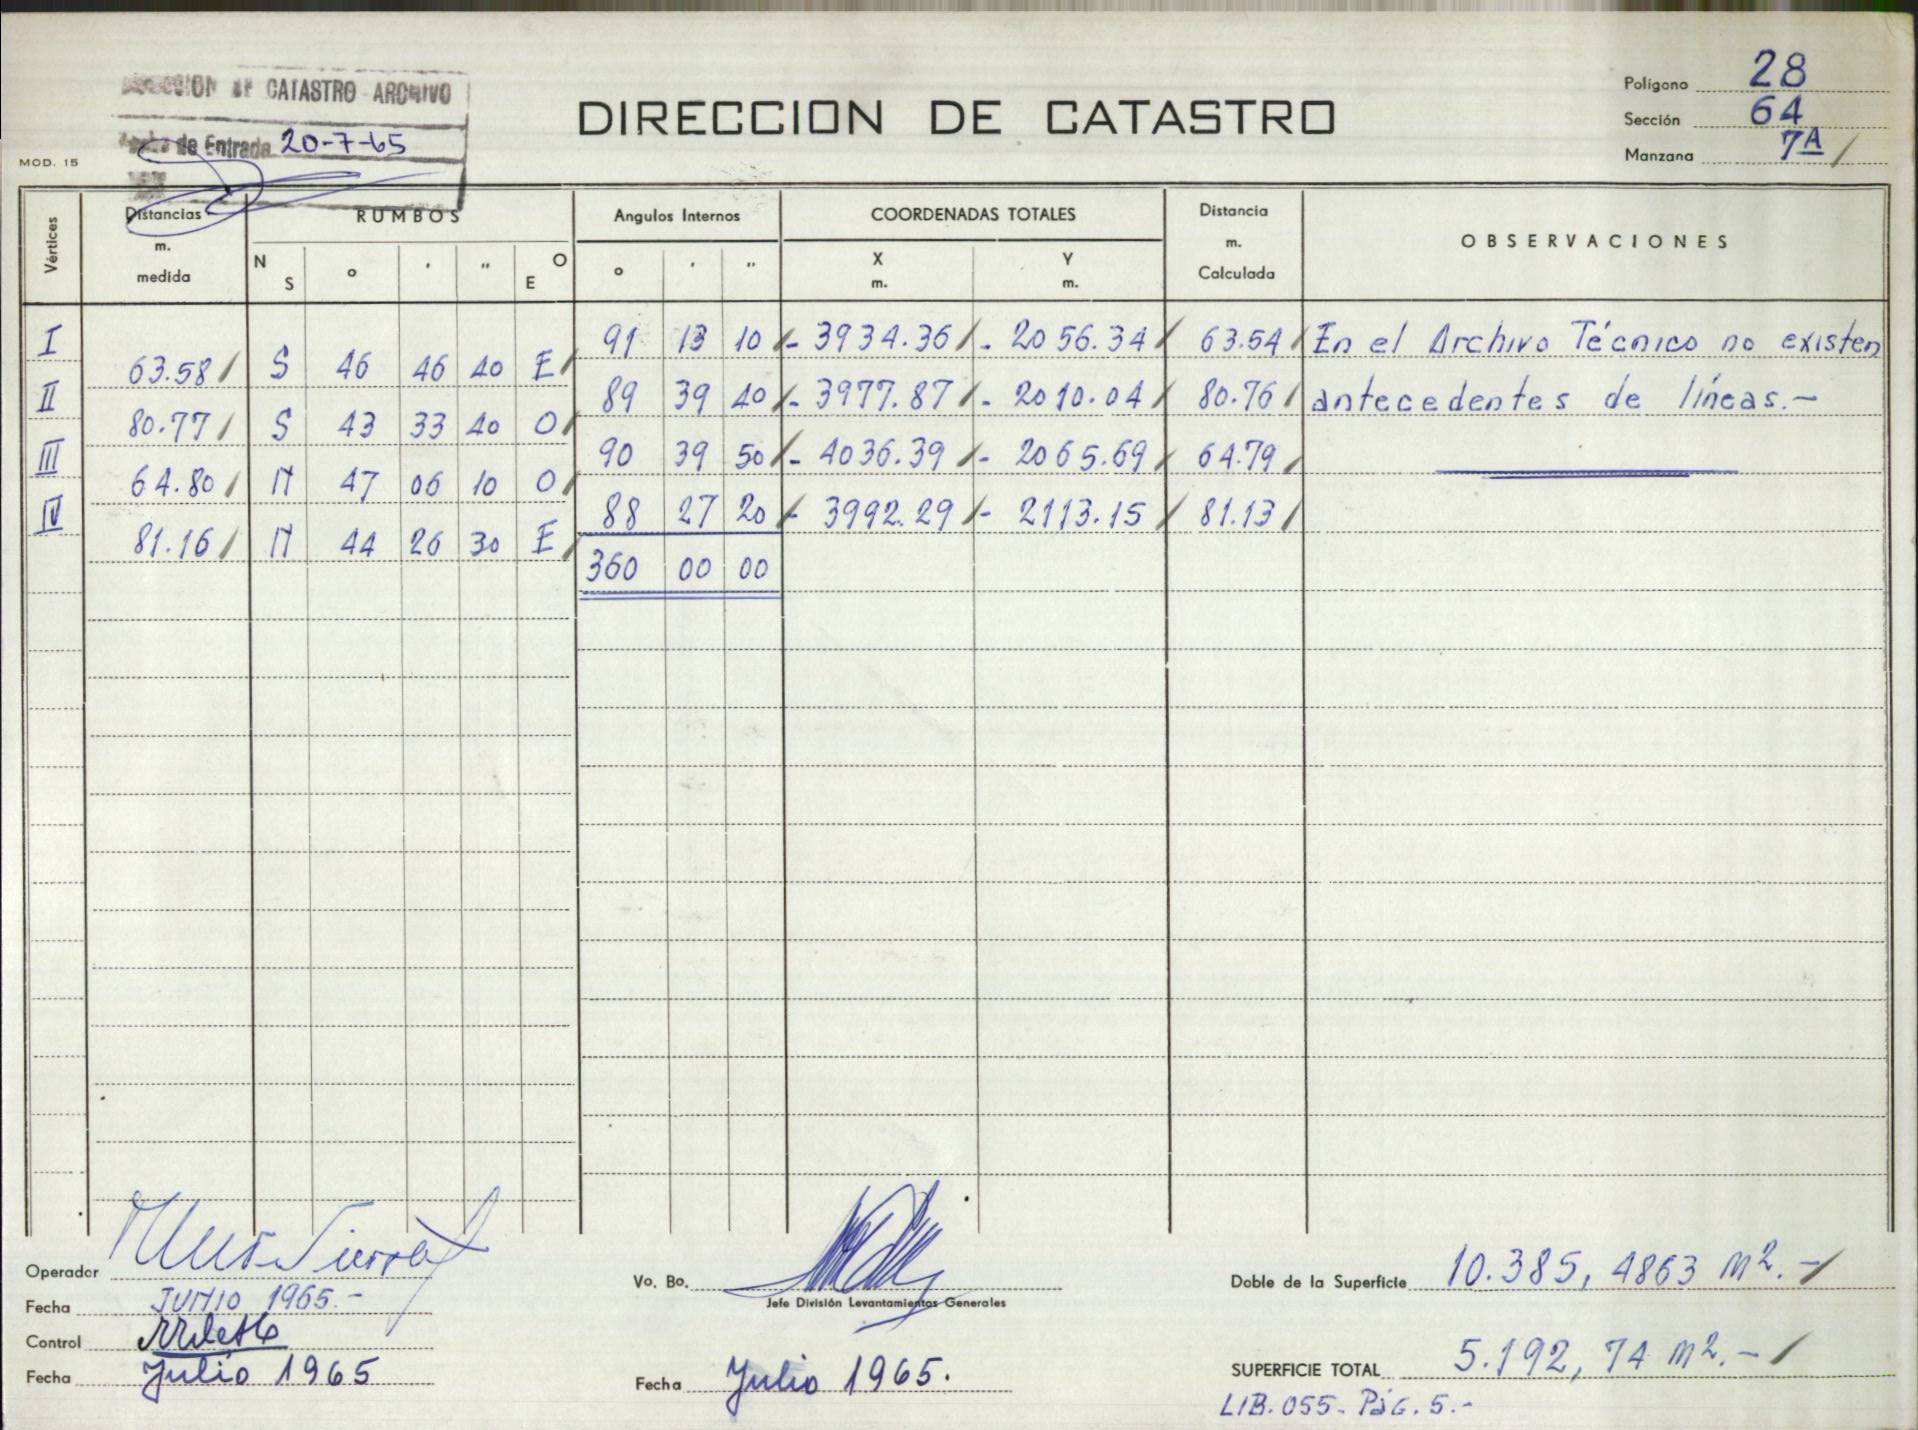 CATASTRO ARCHIVO
de Entrada 20-7-65
MOD. 15
DIRECCION DE CATASTRO
Polígono 28
Sección 64
Manzana 7A
Vértices
Distancias m. medida
RUMBOS
N S o ' " O E
Angulos Internos
o ' "
COORDENADAS TOTALES
X m. Y m.
Distancia m. Calculada
OBSERVACIONES
I 91 13 10 - 3934.36 - 2056.34 63.54 En el Archivo Técnico no existen
63.58 S 46 46 40 E
II 89 39 40 - 3977.87 - 2010.04 80.76 antecedentes de líneas.-
80.77 S 43 33 40 O
III 90 39 50 - 4036.39 - 2065.69 64.79
64.80 N 47 06 10 O
IV 88 27 20 - 3992.29 - 2113.15 81.13
81.16 N 44 26 30 E
360 00 00
Operador
Fecha JUNIO 1965.-
Control
Fecha Julio 1965
Vo. Bo.
Jefe División Levantamientos Generales
Fecha Julio 1965.
Doble de la Superficie 10.385, 4863 m2.-
SUPERFICIE TOTAL 5.192, 74 m2.-
LIB. 055- Pág. 5.-